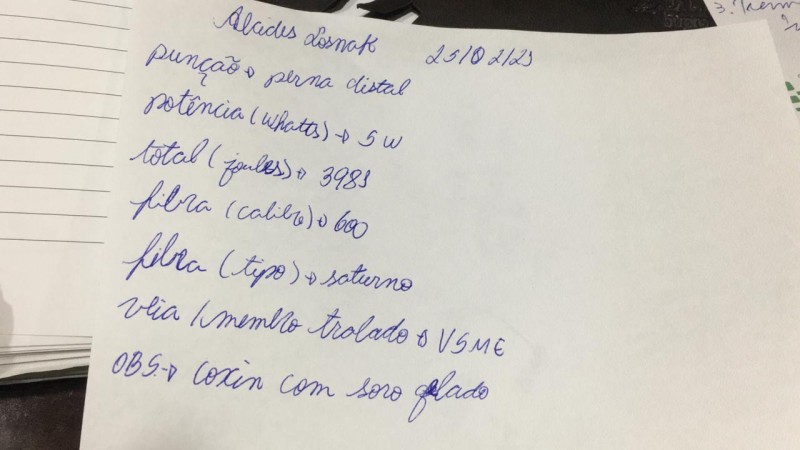 Alcides Losnak 25/02/25
punção → perna distal
potência (whatts) → 5 W
total (joules) → 3981
fibra (calibre) → 600
fibra (tipo) → saturno
veia / membro tratado → VSME
OBS → coxin com soro gelado
3.